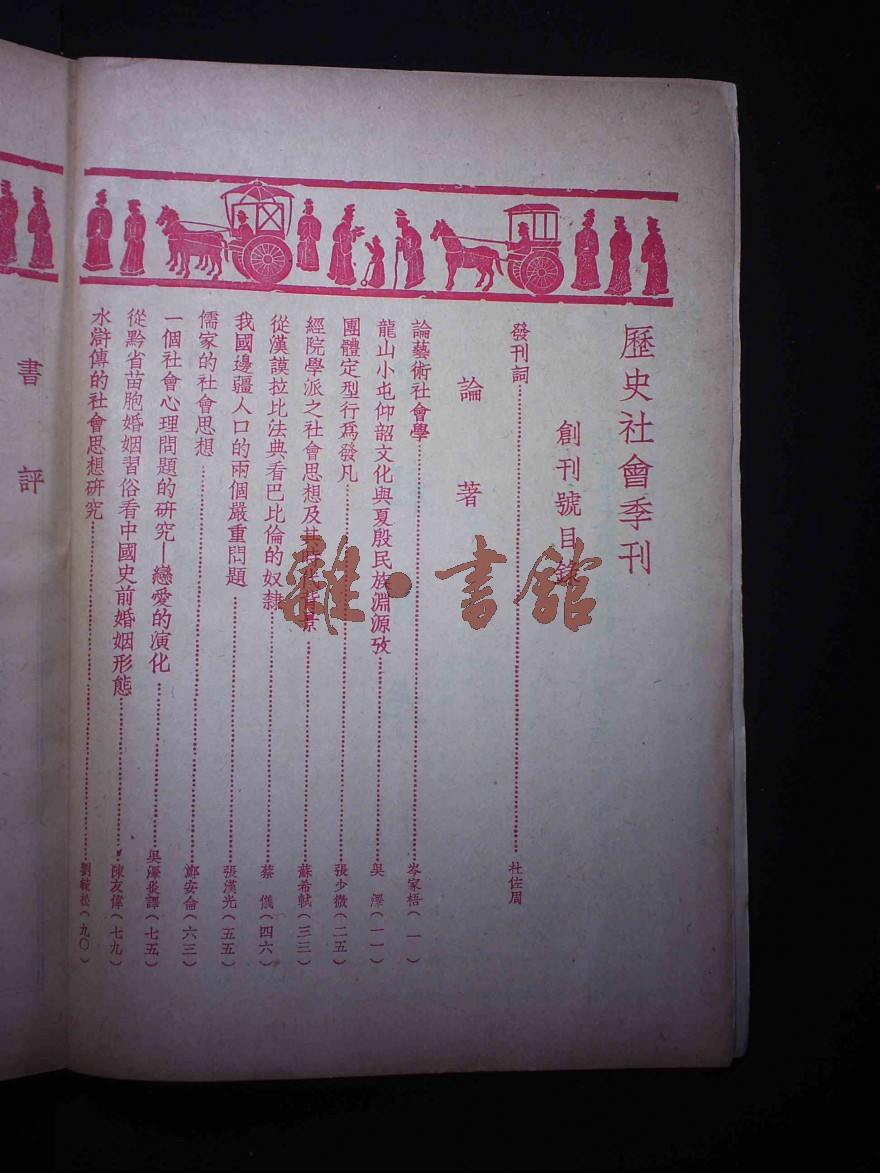 歷史社會季刊
創刊號目錄
發刊詞……杜佐周
論著
論藝術社會學……岑家梧（一）
龍山小屯仰韶文化與夏殷民族淵源攷……吳澤（一一）
團體定型行爲發凡……張少微（二五）
經院學派之社會思想及其時代背景……蘇希軾（三三）
從漢謨拉比法典看巴比倫的奴隸……蔡儀（四六）
我國邊疆人口的兩個嚴重問題……張漢光（五五）
儒家的社會思想……鄭安侖（六三）
一個社會心理問題的研究—戀愛的演化……吳澤炎譯（七五）
從黔省苗胞婚姻習俗看中國史前婚姻形態……陳友偉（七九）
水滸傳的社會思想研究……劉毓松（九〇）
書評
雜·書館